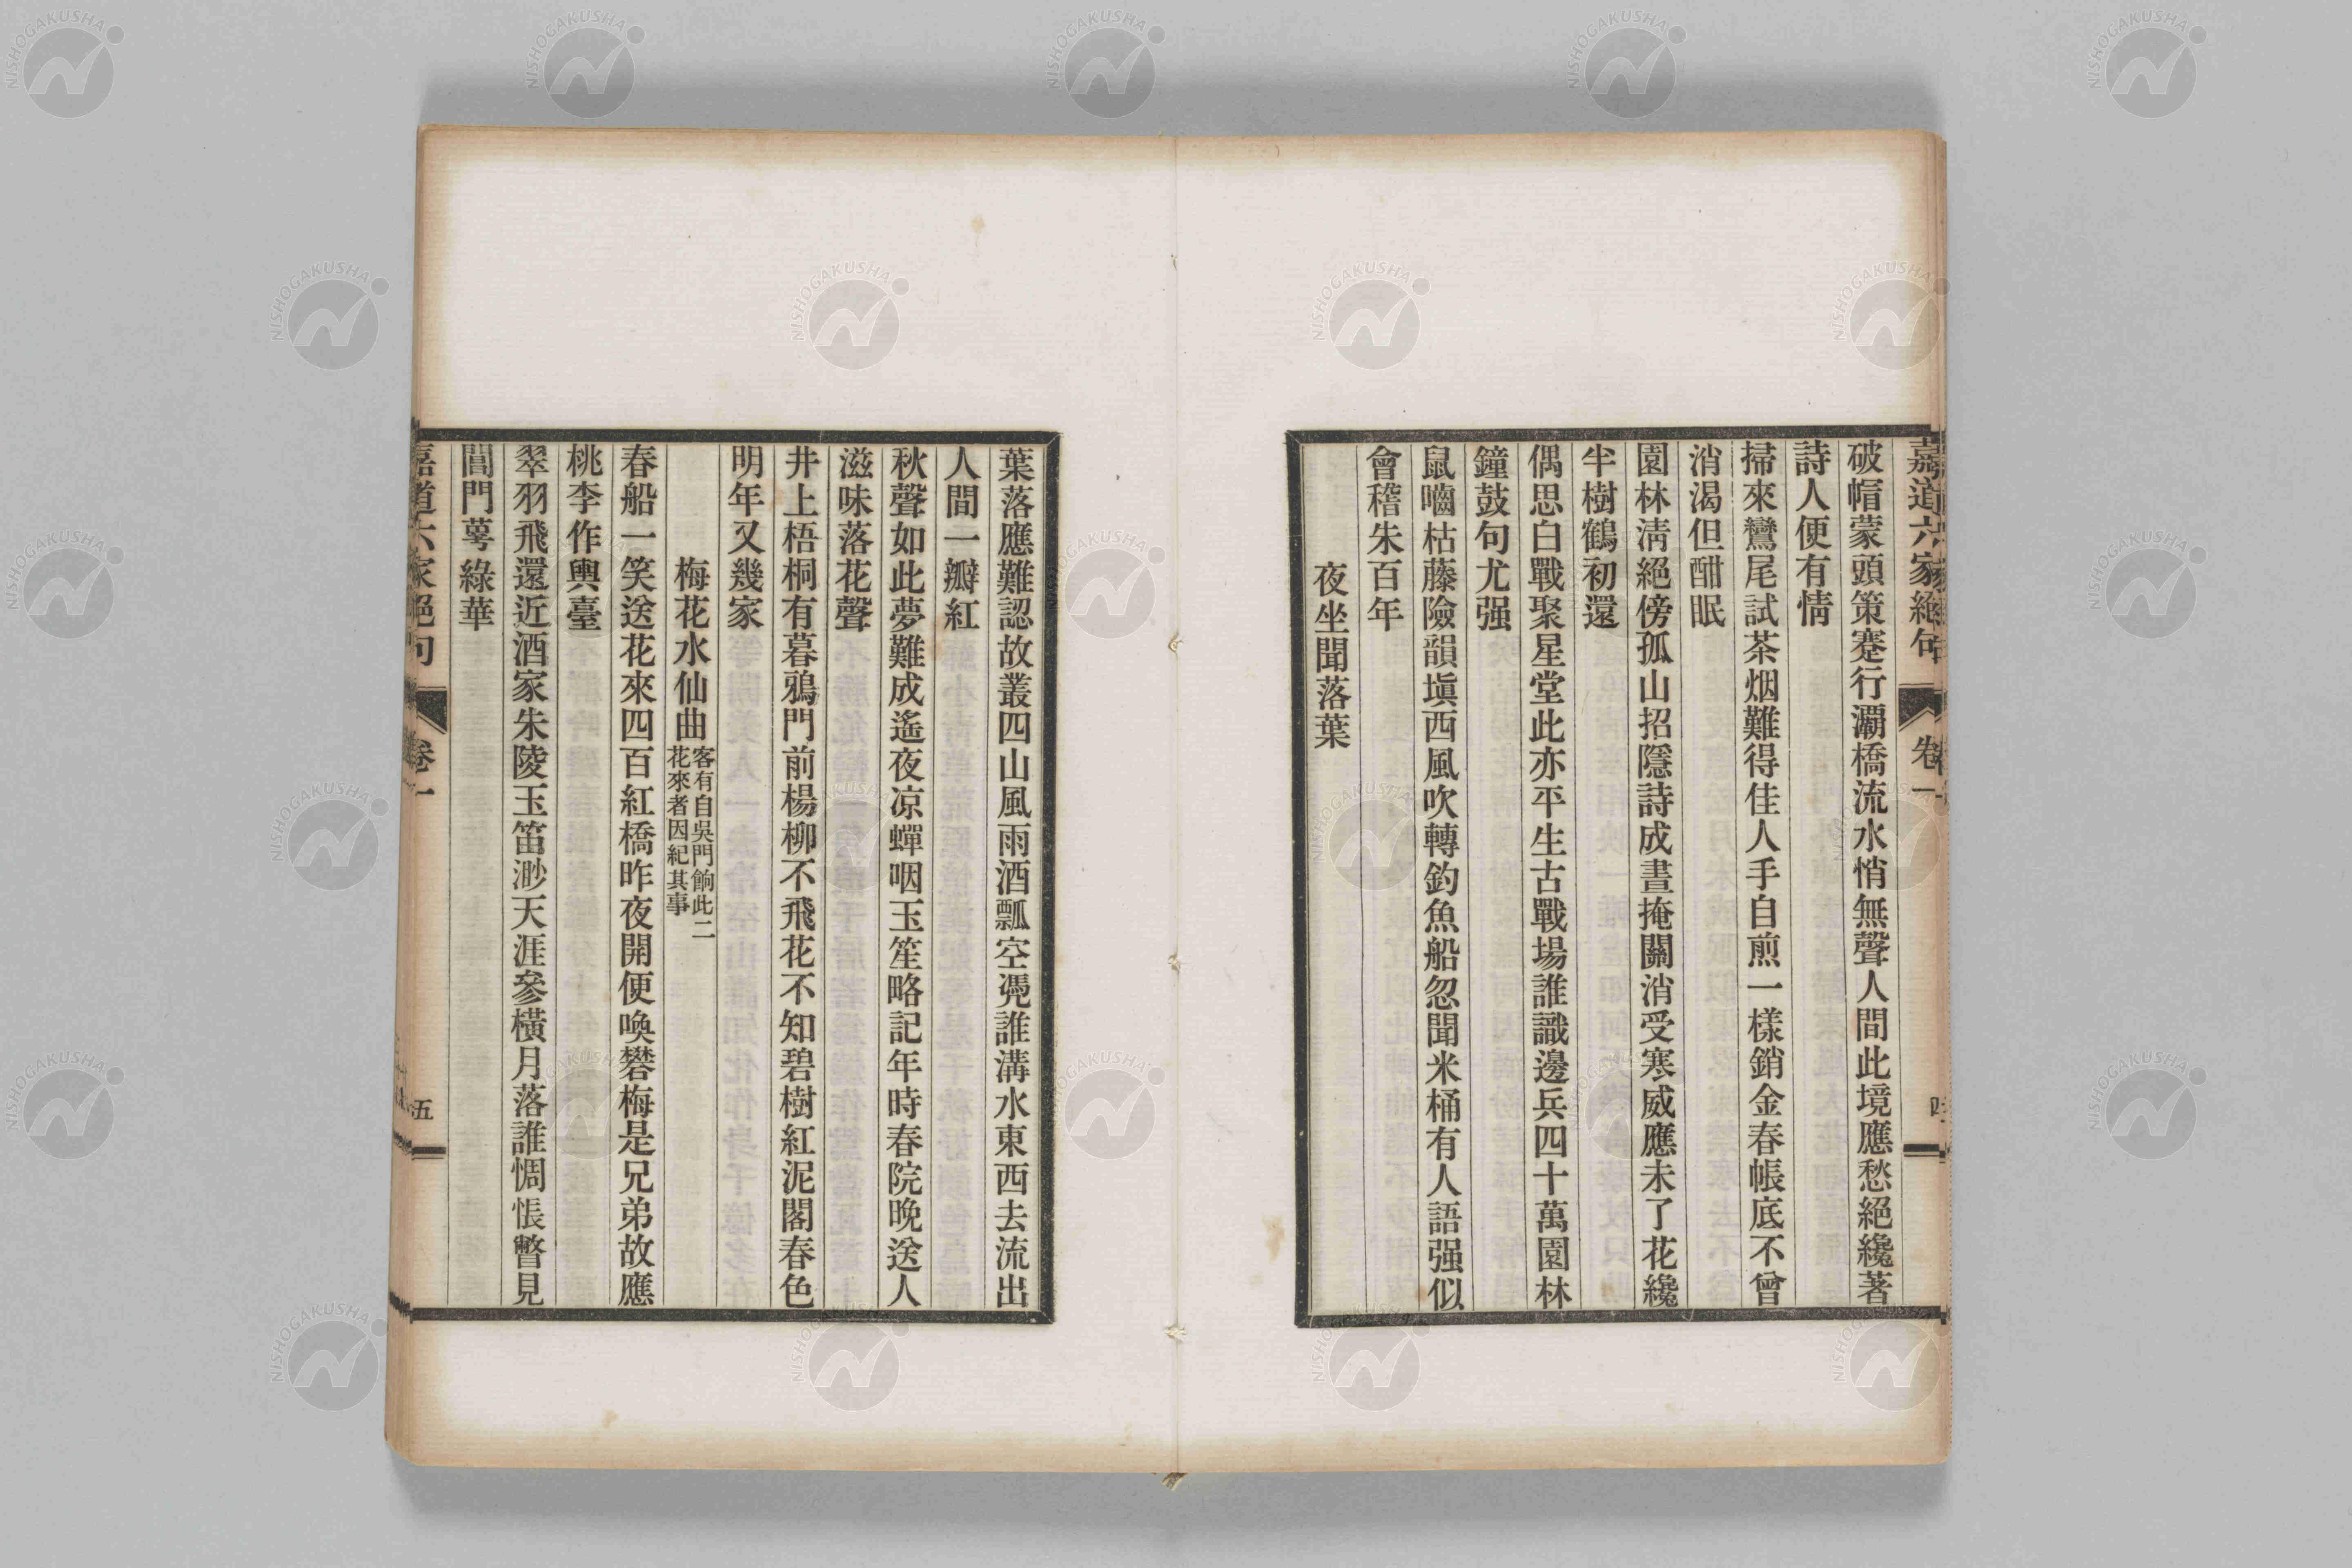 嘉道六家絕句 卷一 四
破帽蒙頭策蹇行灞橋流水悄無聲人間此境應愁絕纔著
詩人便有情
掃來鸞尾試茶烟難得佳人手自煎一樣銷金春帳底不曾
消渴但酣眠
園林淸絕傍孤山招隱詩成晝掩關消受寒威應未了花纔
半樹鶴初還
偶思白戰聚星堂此亦平生古戰場誰識邊兵四十萬園林
鐘鼓句尤强
鼠嚙枯藤險韻塡西風吹轉釣魚船忽聞米桶有人語强似
會稽朱百年
夜坐聞落葉
葉落應難認故叢四山風雨酒瓢空凴誰溝水東西去流出
人間一瓣紅
秋聲如此夢難成遙夜凉蟬咽玉笙略記年時春院晚送人
滋味落花聲
井上梧桐有暮鴉門前楊柳不飛花不知碧樹紅泥閣春色
明年又幾家
梅花水仙曲 客有自吳門餉此二
花來者因紀其事
春船一笑送花來四百紅橋昨夜開便喚礬梅是兄弟故應
桃李作輿臺
翠羽飛還近酒家朱陵玉笛渺天涯參橫月落誰惆悵瞥見
閶門萼綠華
嘉道六家絕句 卷一 五
NISHOGAKUSHA